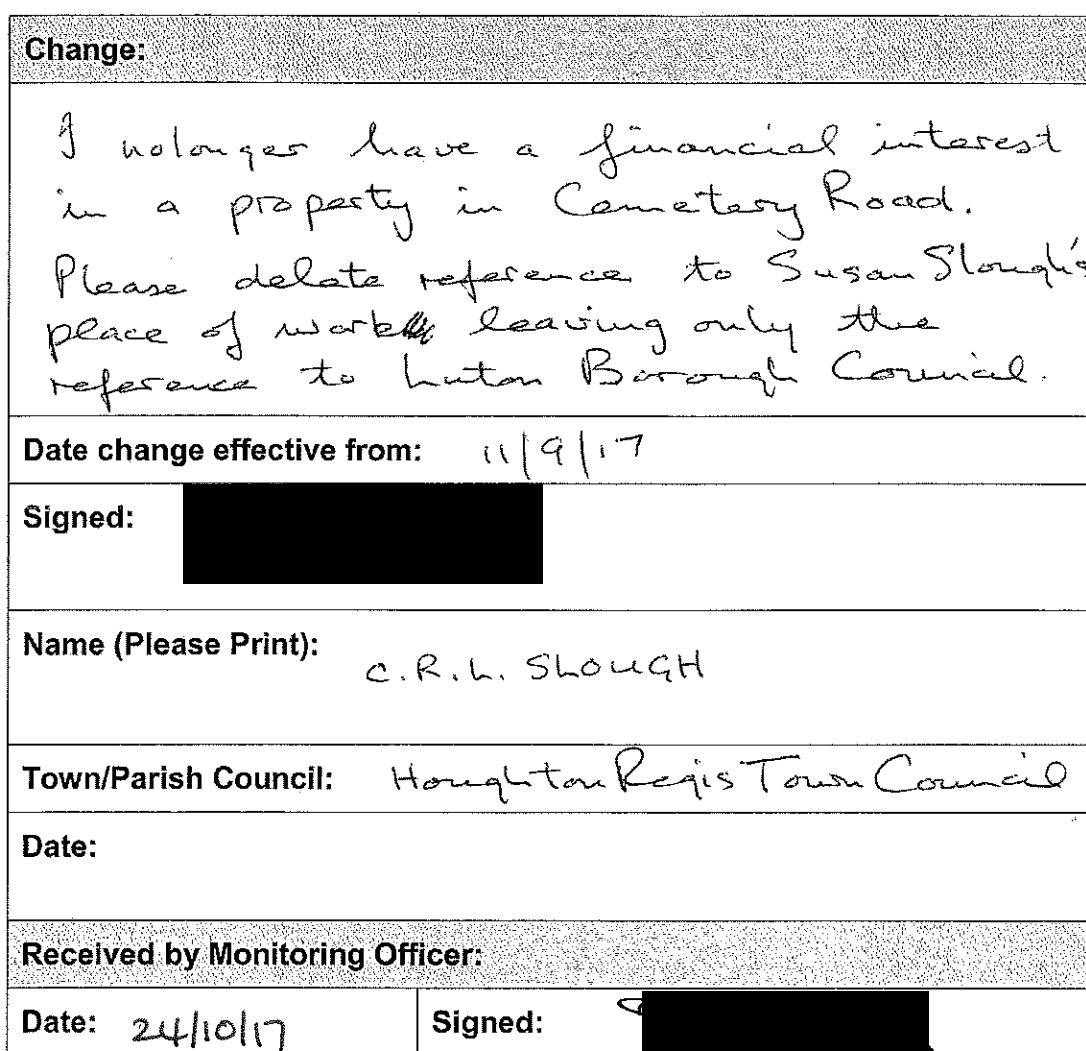 Change:
I nolonger have a financial interest
in a property in Cemetery Road.
Please delete reference to Susan Slough's
place of work leaving only the
reference to Luton Borough Council.
Date change effective from: 11/9/17
Signed:
Name (Please Print): C.R.L. SLOUGH
Town/Parish Council: Houghton Regis Town Council
Date:
Received by Monitoring Officer:
Date: 24/10/17 Signed: